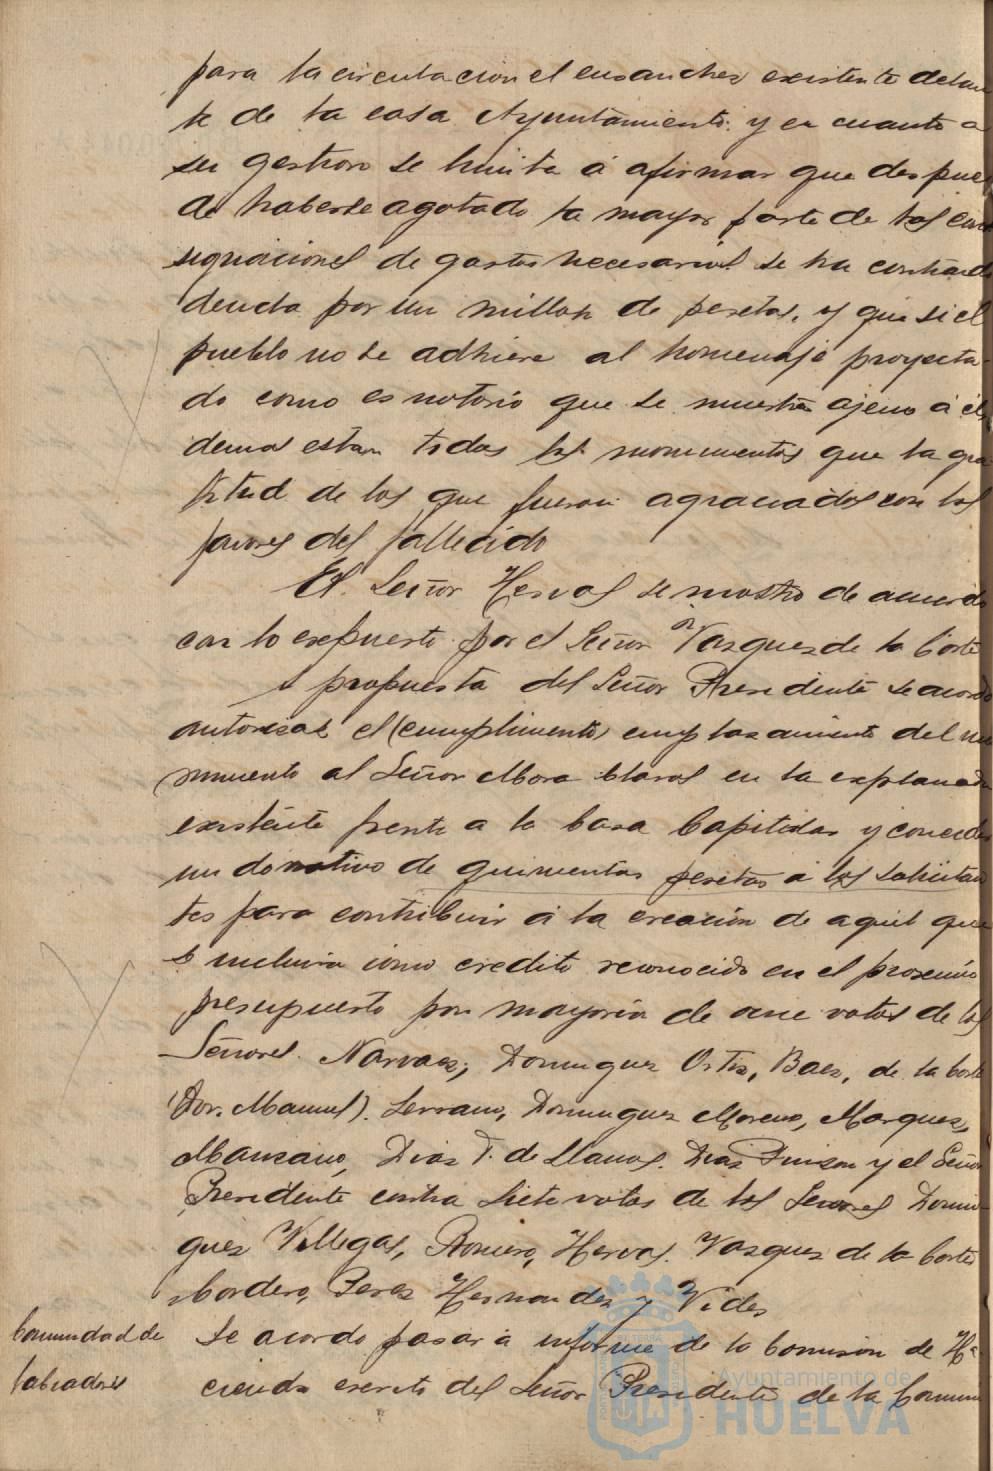 para la circulacion el ensanche existente delan
te de la casa Ayuntamiento: y en cuanto a
su gestion se limita á afirmar que despues
de haberse agotado la mayor parte de las con
signaciones de gastos necesarios se ha contraido
deuda por un millon de pesetas, y que si el
pueblo no se adhiere al homenaje proyecta-
do como es notorio que se muestra ajeno á el,
demas estan todos los monumentos que la gra
titud de los que fueron agraciados con los
favores del fallecido
El Señor Hervas se mostro de acuerdo
con lo expuesto por el Señor Vazquez de la Corte
A propuesta del Señor Presidente se acordo
autorizar el (cumplimento) emplazamiento del mo
numento al Señor Mora Claros en la explanada
existente frente a la Casa Capitular y conceder
un donativo de quinientas pesetas á los solicitan
tes para contribuir á la creación de aquel que
se incluira como credito reconocido en el proximo
presupuesto por mayoria de once votos de los
Señores. Narvaez, Dominguez Ortiz, Baez, de la Corte
(Don Manuel). Serrano, Dominguez Moreno, Marquez,
Manzano, Diaz F. de Llanos. Diaz Pinzon y el Señor
Presidente contra siete votos de los Señores Domin
guez Villegas, Romero, Hervas. Vazquez de la Corte
Cordero, Perez Hernandez y Vides
Comunidad de
labradores
Se acordo pasar á informe de la Comision de Ha-
cienda escrito del Señor Presidente de la Comuni
Ayuntamiento de
HUELVA